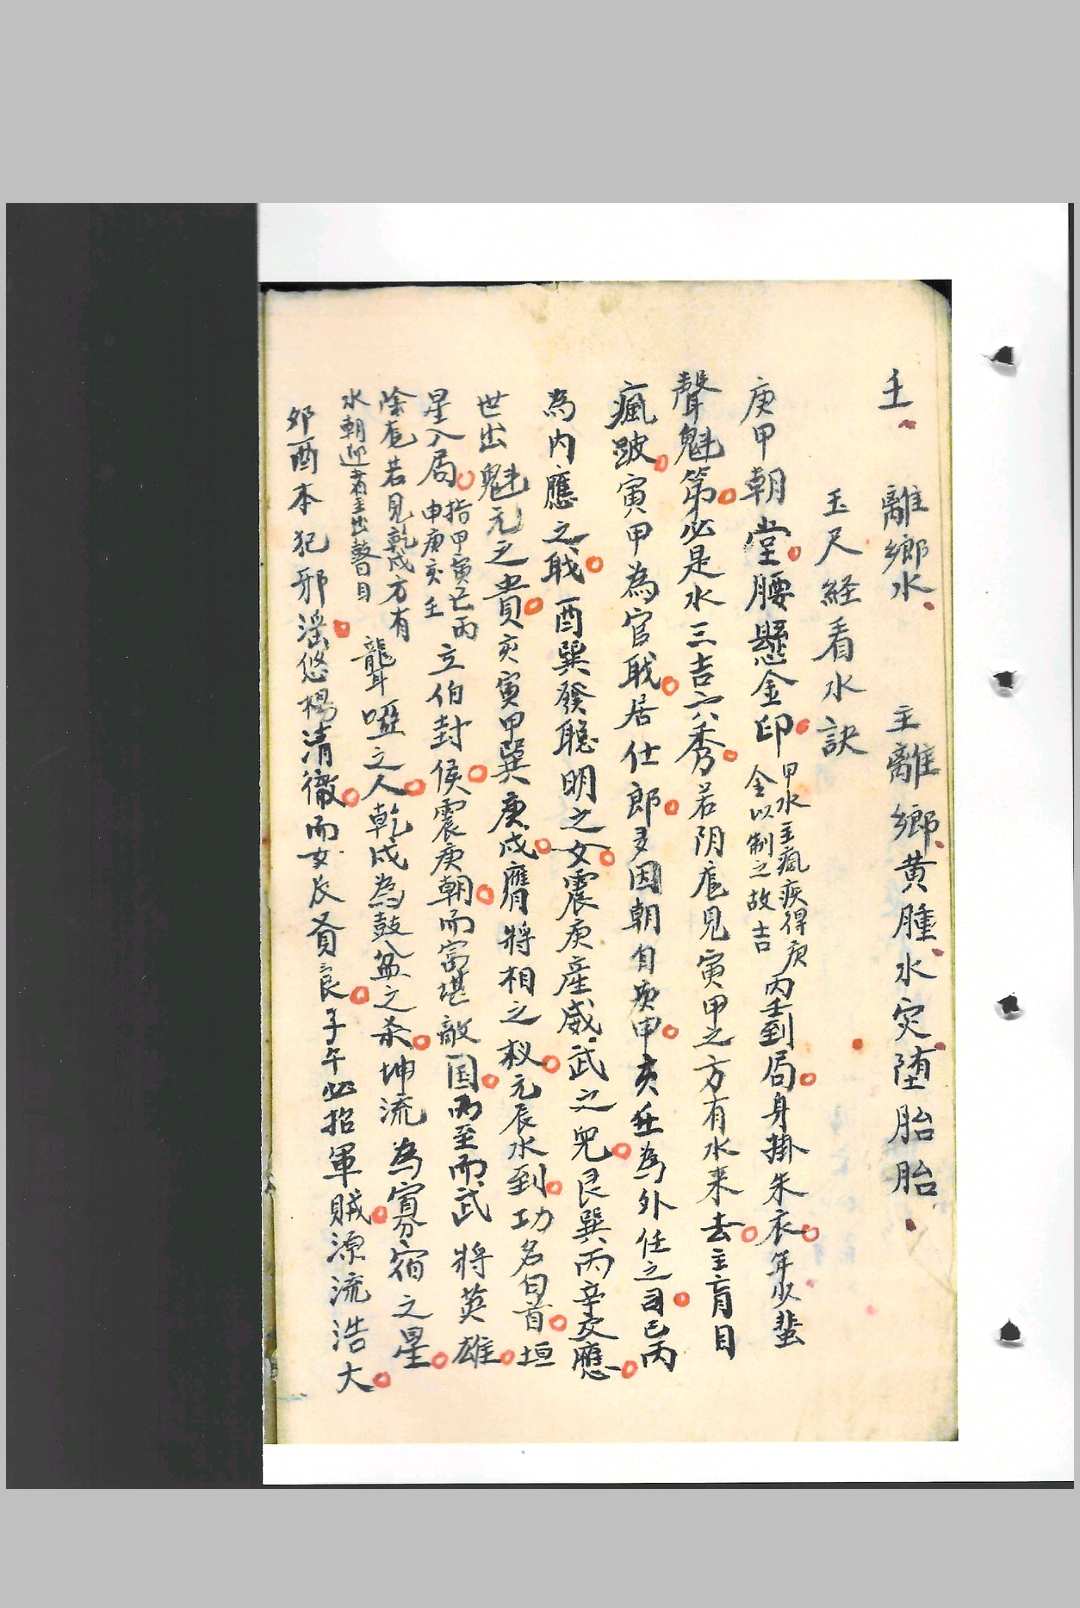 壬 離鄉水 主離鄉黄腫水灾堕胎胎
玉尺経看水訣
庚甲朝堂腰懸金印 甲水主瘋疾得庚金以制之故吉 丙壬到局身掛朱衣年少蜚
聲魁第必是水三吉六秀若阴庭見寅甲之方有水来去主肓目
瘋跛寅甲為官戢居仕郎多因朝自庚甲亥壬為外任之司巳丙
為内應之戢酉巽發聰明之女震庚産威武之兒艮巽丙辛交應
世出魁元之貴亥寅甲巽庚戍膺將相之权元辰水到功名自首垣
星入局 指甲寅巳丙申庚亥壬 立伯封侯震庚朝而富堪敵国丙至而武將英雄
陰龙若見乾戍方有水朝迎者主出瞽目 聾啞之人乾戍為鼓盆之杀坤流為寡宿之星
夘酉本犯邪滛悠楊清徹而女反貞良子午必招軍賊源流浩大